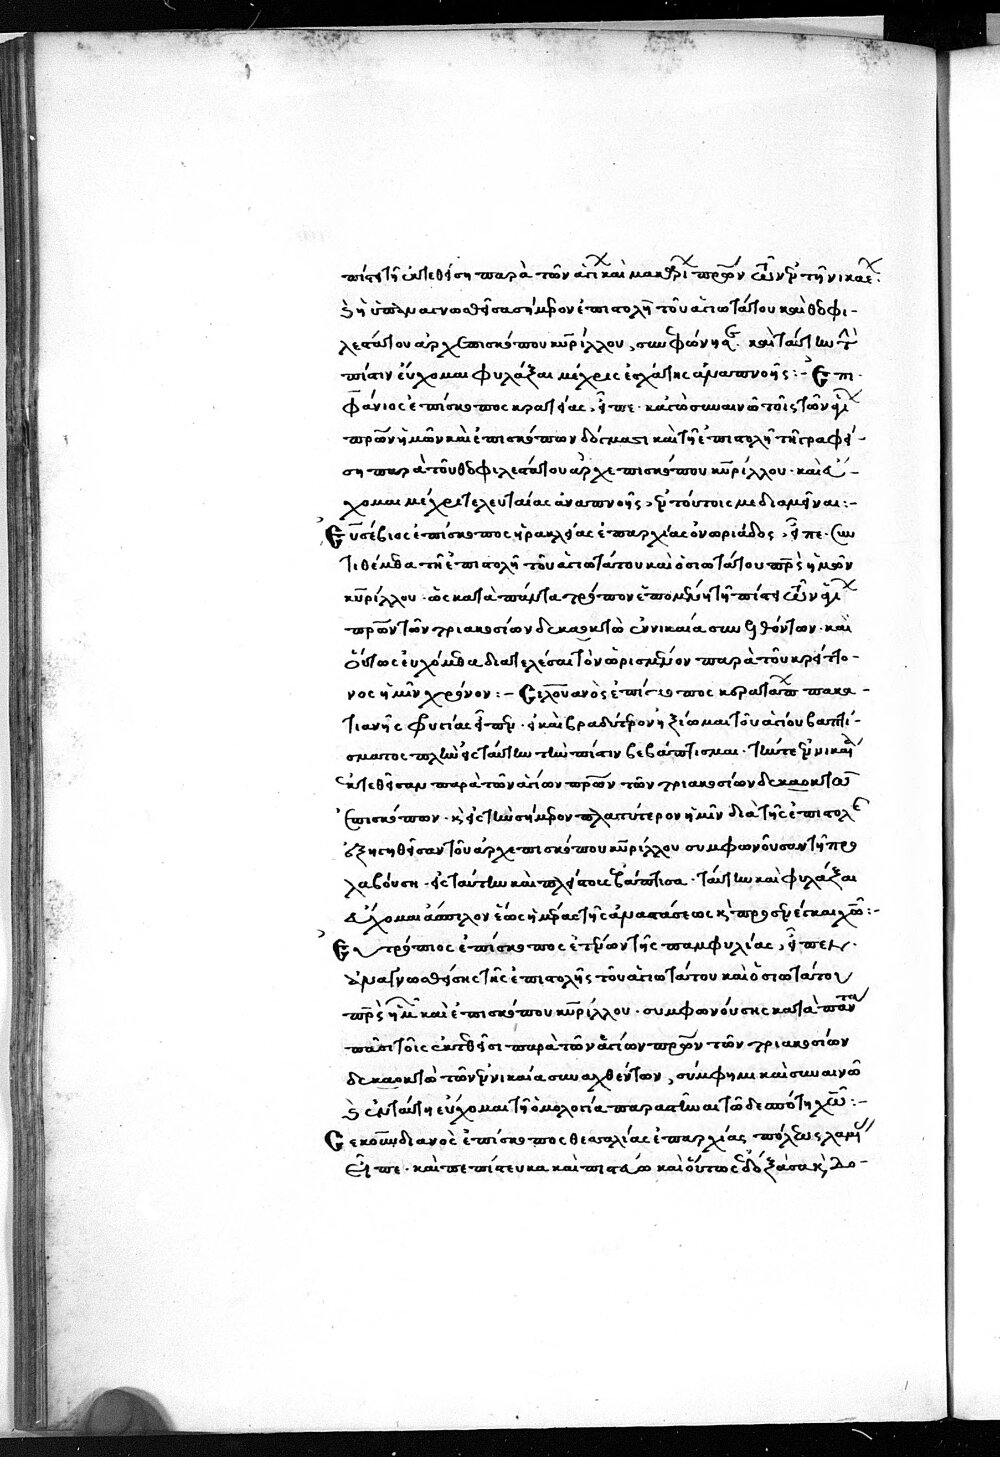 πίστει τῇ ἐκτεθείσῃ παρὰ τῶν ἁγίων καὶ μακαρίων πρων τῶν ἐν τῇ νικαέων
ἡ ὑπαναγνωσθεῖσα σήμερον ἐπιστολὴ τοῦ ἁγιωτάτου καὶ θεοφι-
λεστάτου ἀρχιεπισκόπου κυρίλλου, συμφωνεῖ· καὶ ταύτην τὴν
πίστιν εὔχομαι φυλάξαι μέχρις ἐσχάτης ἀναπνοῆς :- Ἐπι-
φάνιος ἐπίσκοπος κρατείας, εἶπε· κἀγὼ συναινῶ τοῖς τῶν ἁγίων
πρων ἡμῶν καὶ ἐπισκόπων δόγμασι καὶ τῇ ἐπιστολῇ τῇ γραφεί-
σῃ παρὰ τοῦ θεοφιλεστάτου ἀρχιεπισκόπου κυρίλλου· καὶ εὔ-
χομαι μέχρι τελευταίας ἀναπνοῆς, ἐν τούτοις με διαμεῖναι :-
Εὐσέβιος ἐπίσκοπος ἡρακλείας ἐπαρχίας ὀνωριάδος, εἶπε· συν
τιθέμεθα τῇ ἐπιστολῇ τοῦ ἁγιωτάτου καὶ ὁσιωτάτου πρς ἡμῶν
κυρίλλου· ὡς κατὰ πάντα τρόπον ἑπομένῃ τῇ πίστει τῶν ἁγίων
πρων τῶν τριακοσίων δεκαοκτὼ ἐν νικαία συνελθόντων· καὶ
οὕτως εὐχόμεθα διατελέσαι τὸν ὡρισμένον παρὰ τοῦ κρείττο-
νος ἡμῖν χρόνον :- Σιλουανὸς ἐπίσκοπος κερατάπων πακα-
τιανῆς φρυγίας εἶπεν· εἰ καὶ βραδύτερον ἠξίωμαι τοῦ ἁγίου βαπτί-
σματος πλὴν εἰς ταύτην τὴν πίστιν βεβάπτισμαι· τήν τε ἐν νικαίᾳ
ἐκτεθεῖσαν παρὰ τῶν ἁγίων πρων τῶν τριακοσίων δεκαοκτὼ
ἐπισκόπων· καὶ εἰς τὴν σήμερον πλατύτερον ἡμῖν διὰ τῆς ἐπιστολῆς
ἐξηγηθεῖσαν τοῦ ἀρχιεπισκόπου κυρίλλου συμφωνοῦσαν τῇ προ
λαβούσῃ· εἰς ταύτην καὶ πλείστους ἐβάπτισα· ταύτην καὶ φυλάξαι
εὔχομαι ἄσπιλον ἕως ἡμέρας τῆς ἀναστάσεως καὶ προσενέγκαι χῷ :-
Εὐτρόπιος ἐπίσκοπος ἐτένων τῆς παμφυλίας, εἶπεν·
ἀναγνωσθείσης τῆς ἐπιστολῆς τοῦ ἁγιωτάτου καὶ ὁσιωτάτου
πρς ἡμῶν καὶ ἐπισκόπου κυρίλλου· συμφωνούσης κατὰ πάντα
πᾶσι τοῖς ἐκτεθεῖσι παρὰ τῶν ἁγίων πρων τῶν τριακοσίων
δεκαοκτὼ τῶν ἐν νικαία συναχθέντων, σύμφημι καὶ συναινῶ
καὶ ἐν ταύτῃ εὔχομαι τῇ ὁμολογία παραστῆναι τῷ δεσπότῃ χῷ :-
Σεκουνδιανὸς ἐπίσκοπος θετταλίας ἐπαρχίας πόλεως λαμίας
εἶπε· καὶ πεπίστευκα καὶ πιστεύω καὶ οὕτως ἐδόξασα καὶ δο-